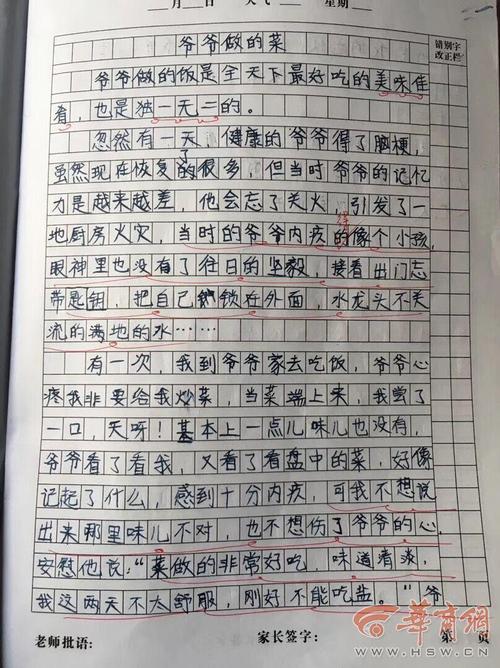 月 日 天气 星期
错别字
改正栏
爷爷做的菜
爷爷做的饭是全天下最好吃的美味佳
肴，也是独一无二的。
忽然有一天，健康的爷爷得了脑梗，
虽然现在恢复了的很多，但当时爷爷的记忆
力是越来越差，他会忘了关火，引发了一
地厨房火灾，当时的爷爷内疚的像个小孩，
得
眼神里也没有了往日的坚毅，接着出门忘
带匙钥，把自己锁在外面，水龙头不关
流的满地的水……
有一次，我到爷爷家去吃饭，爷爷心
疼我非要给我炒菜，当菜端上来，我尝了
一口，天呀！基本上一点儿味儿也没有，
爷爷看了看我，又看了看盘中的菜，好像
记起了什么，感到十分内疚，可我不想说
出来那里味儿不对，也不想伤了爷爷的心，
安慰他说："菜做的非常好吃，味道着淡，
我这两天不太舒服，刚好不能吃盐。"爷
老师批语： 家长签字： 第 页
华商网
WWW.HSW.CN